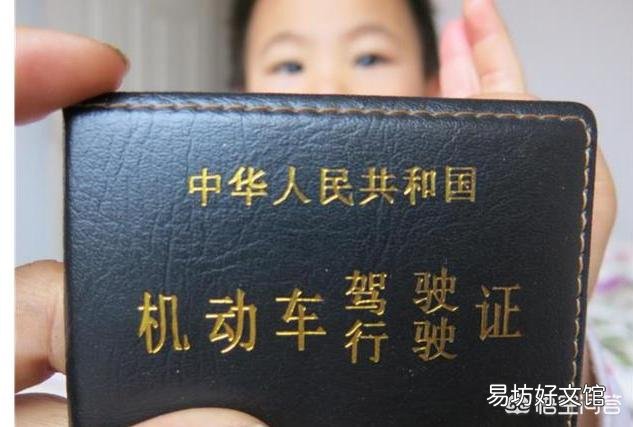 中华人民共和国
机动车驾驶证
行驶
易坊好文馆
悟空问答